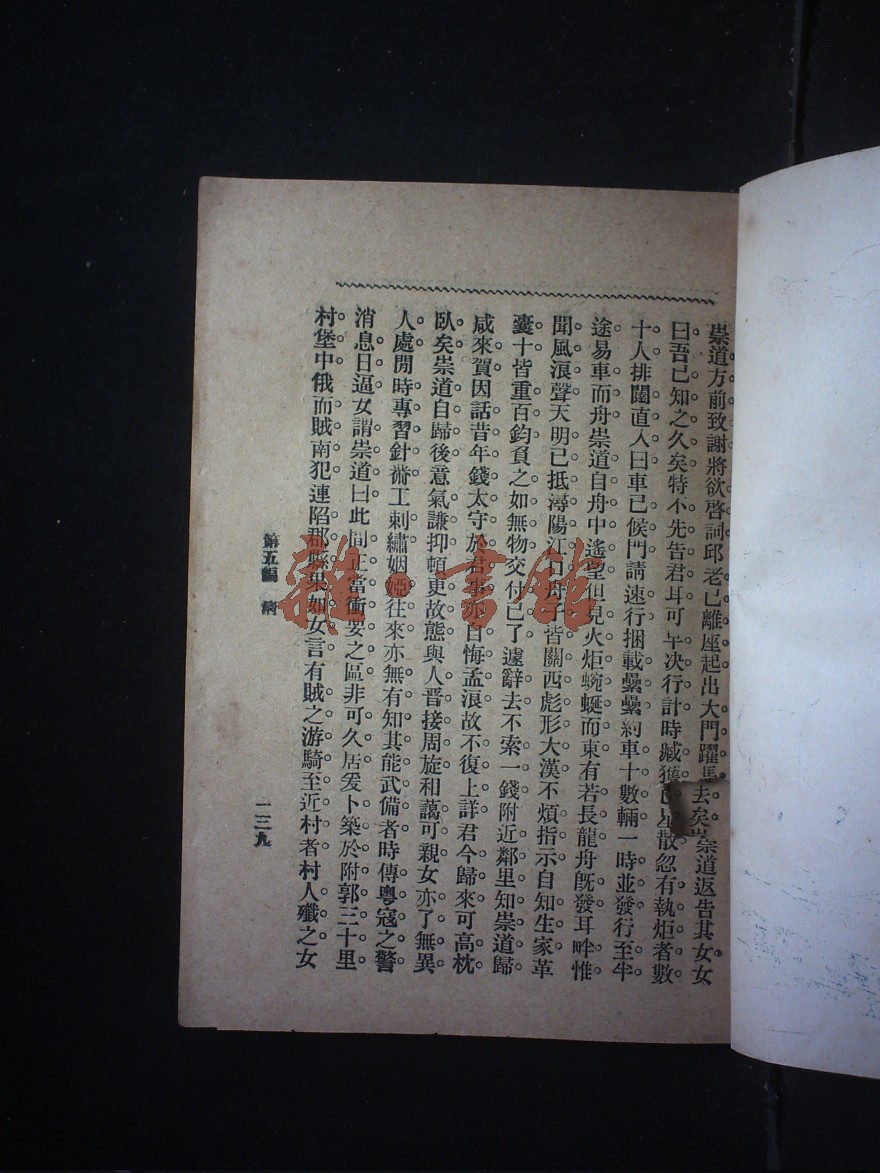 崇道方前致謝將欲啓詞邱老已離座起出大門躍馬去矣崇道返告其女女
曰吾已知之久矣特不先告君耳可午決行計時臧獲已星散忽有執炬者數
十人排闥直入曰車已候門請速行捆載纍纍約車十數輛一時並發行至半
途易車而舟崇道自舟中遙望但見火炬蜿蜒而東有若長龍舟旣發耳畔惟
聞風浪聲天明已抵潯陽江口舟子皆關西彪形大漢不煩指示自知生家革
囊十皆重百鈞負之如無物交付已了遽辭去不索一錢附近鄰里知崇道歸
咸來賀因話昔年錢太守於君事亦自悔孟浪故不復上詳君今歸來可高枕
臥矣崇道自歸後意氣謙抑頓更故態與人晋接周旋和藹可親女亦了無異
人處閒時專習針黹工刺繡姻婭往來亦無有知其能武備者時傳粵寇之警
消息日逼女謂崇道曰此間正當衝要之區非可久居爰卜築於附郭三十里
村堡中俄而賊南犯連陷郡縣果如女言有賊之游騎至近村者村人殲之女
第五編
一三九
雜·書館